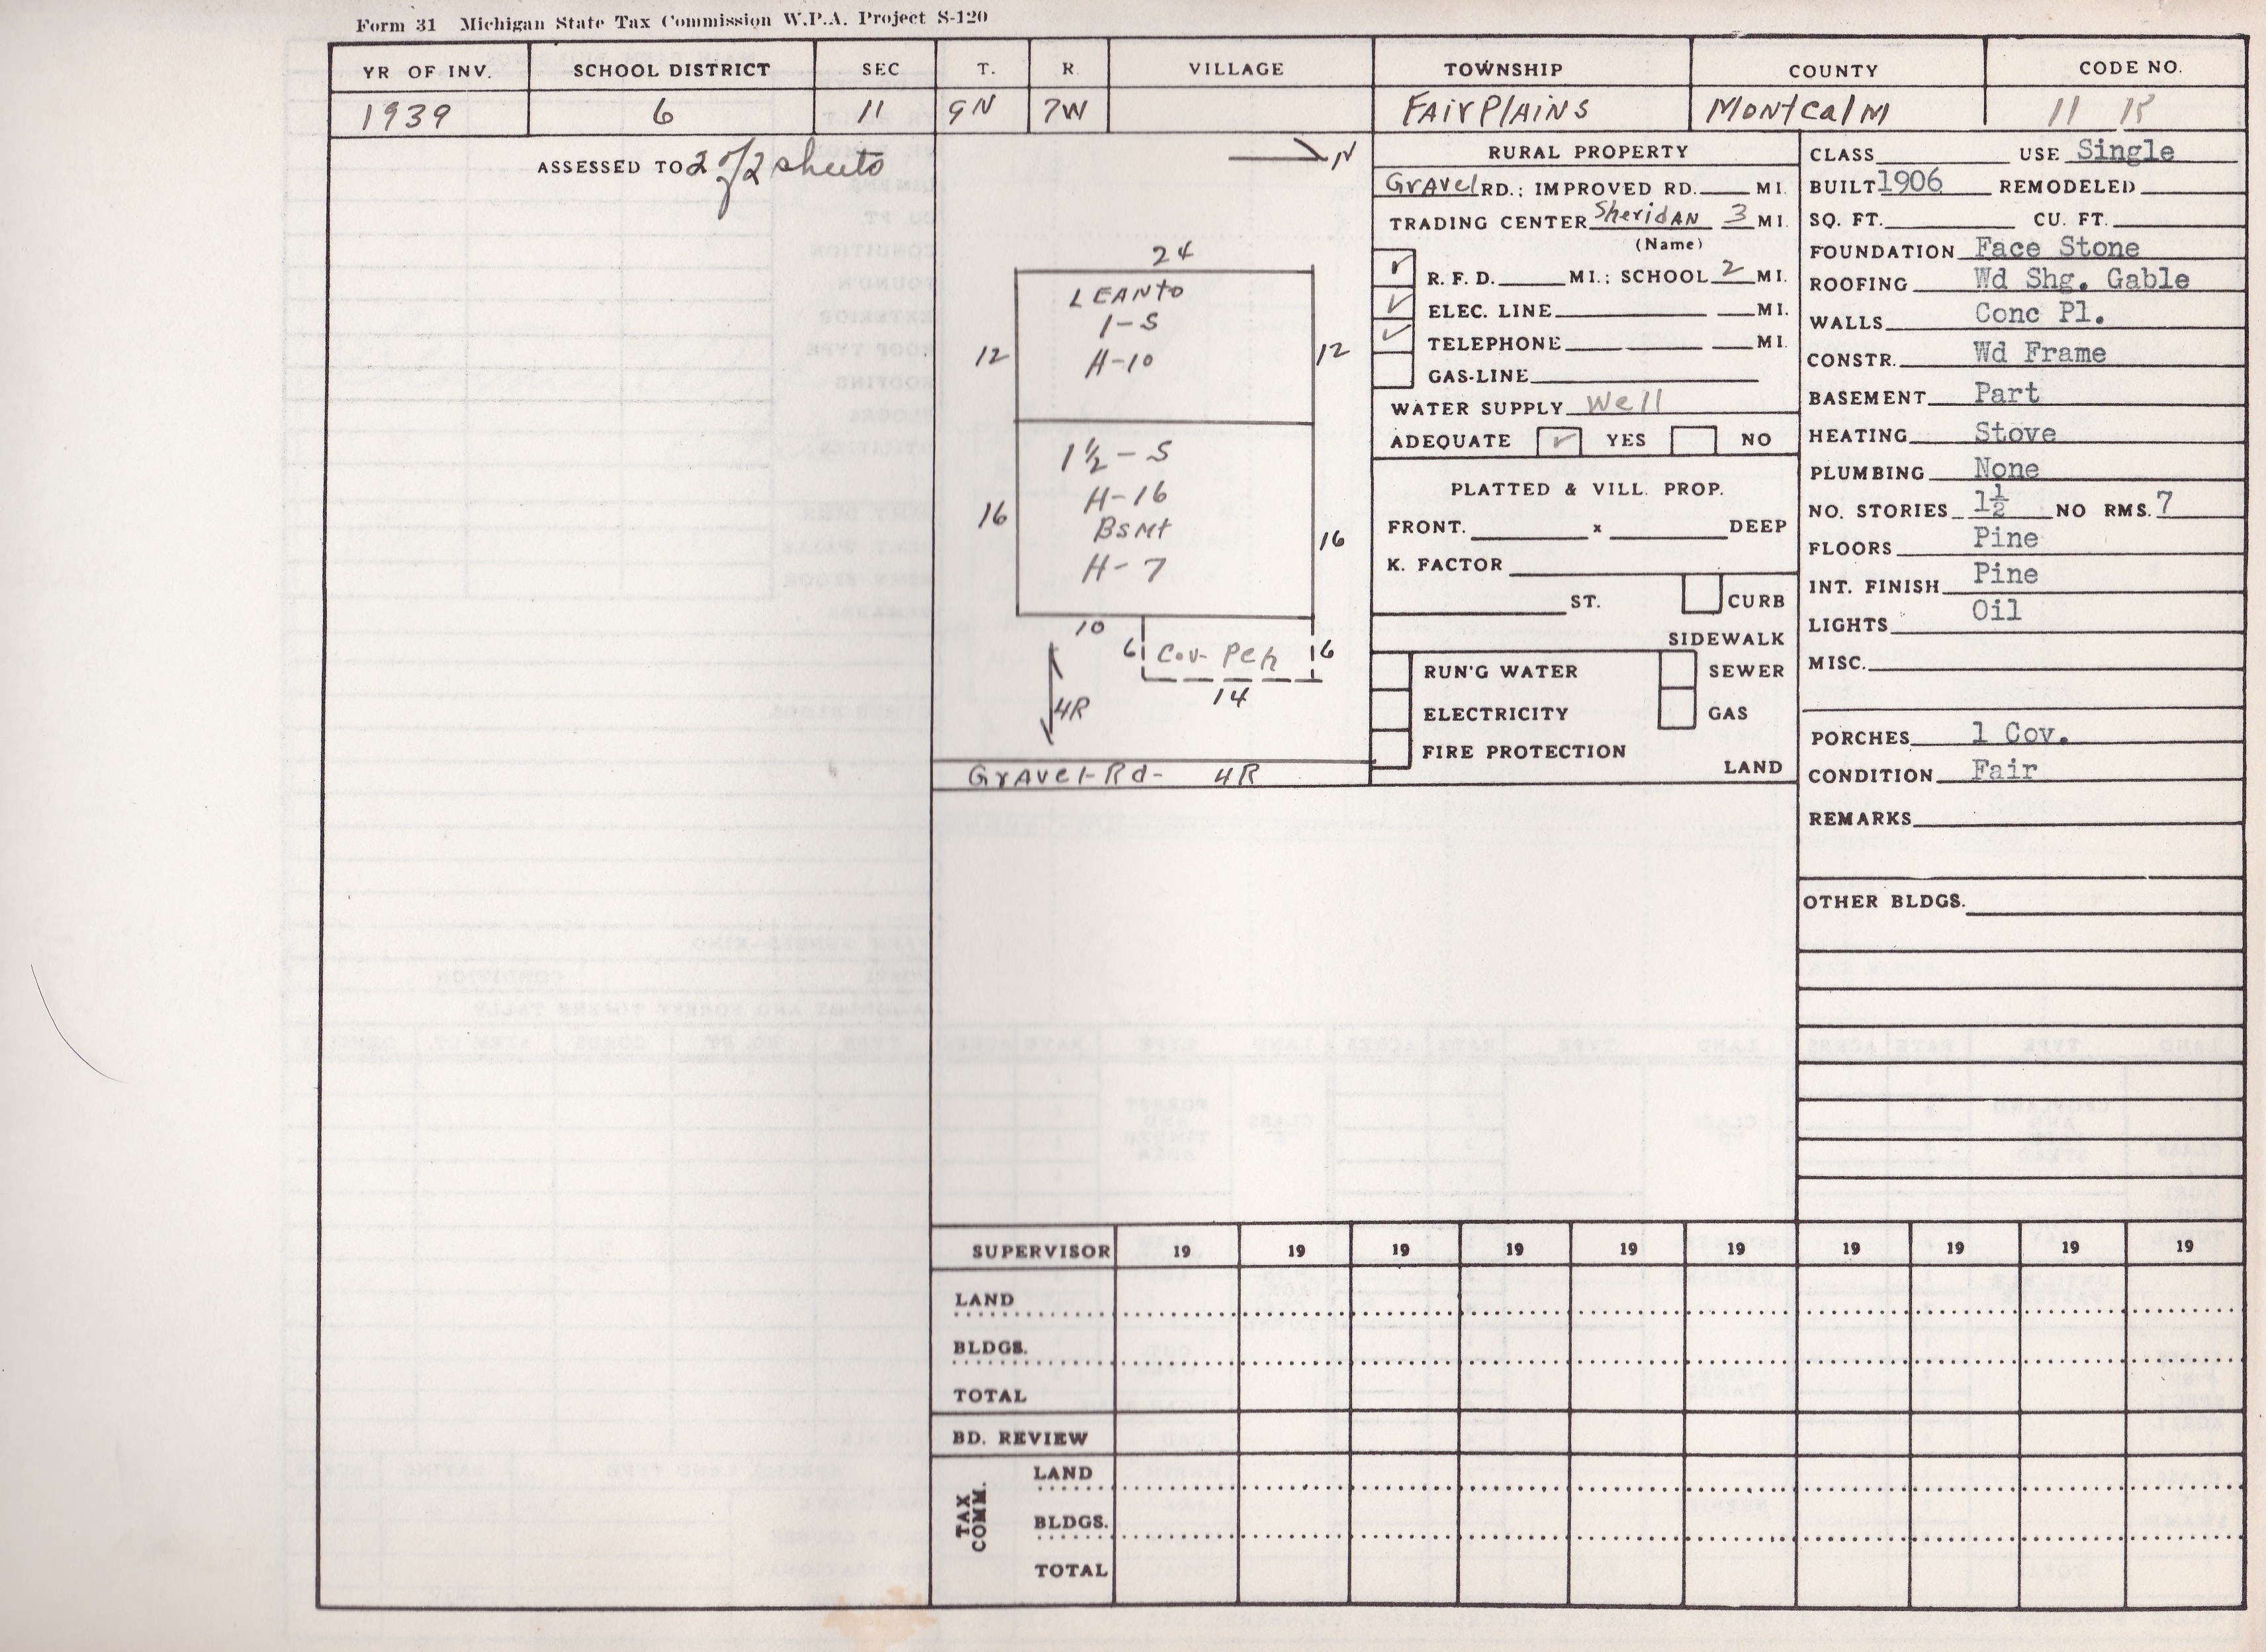 Form 31 Michigan State Tax Commission W.P.A. Project S-120
YR OF INV. SCHOOL DISTRICT SEC T. R. VILLAGE TOWNSHIP COUNTY CODE NO.
1939 6 11 9N 7W FAIrPlAiNS MontCalM 11 R
ASSESSED TO 2 of 2 sheets
N
24
LEANto
1-S
H-10
12 12
1½-S
H-16
BsMt
H-7
16 16
10
6 Cov- Pch 6
14
4R
GrAvel-Rd- 4R
RURAL PROPERTY
GrAvel RD.; IMPROVED RD. MI.
TRADING CENTER SheridAN 3 MI.
(Name)
✓ R.F.D. MI.; SCHOOL 2 MI.
✓ ELEC. LINE MI.
✓ TELEPHONE MI.
GAS-LINE
WATER SUPPLY Well
ADEQUATE ✓ YES NO
PLATTED & VILL. PROP.
FRONT. x DEEP
K. FACTOR
ST. CURB
SIDEWALK
RUN'G WATER SEWER
ELECTRICITY GAS
FIRE PROTECTION
LAND
CLASS USE Single
BUILT 1906 REMODELED
SQ. FT. CU. FT.
FOUNDATION Face Stone
ROOFING Wd Shg. Gable
WALLS Conc Pl.
CONSTR. Wd Frame
BASEMENT Part
HEATING Stove
PLUMBING None
NO. STORIES 1½ NO RMS. 7
FLOORS Pine
INT. FINISH Pine
LIGHTS Oil
MISC.
PORCHES 1 Cov.
CONDITION Fair
REMARKS
OTHER BLDGS.
SUPERVISOR 19 19 19 19 19 19 19 19 19 19
LAND
BLDGS.
TOTAL
BD. REVIEW
TAX COMM.
LAND
BLDGS.
TOTAL